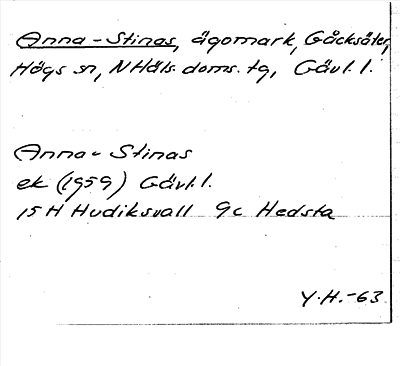 Anna-Stinas, ägomark, Gåcksäter,
Högs sn, N Häls. doms. tg, Gävl. l.
Anna-Stinas
ek (1959) Gävl. l.
15 H Hudiksvall 9c Hedsta
Y.H.-63